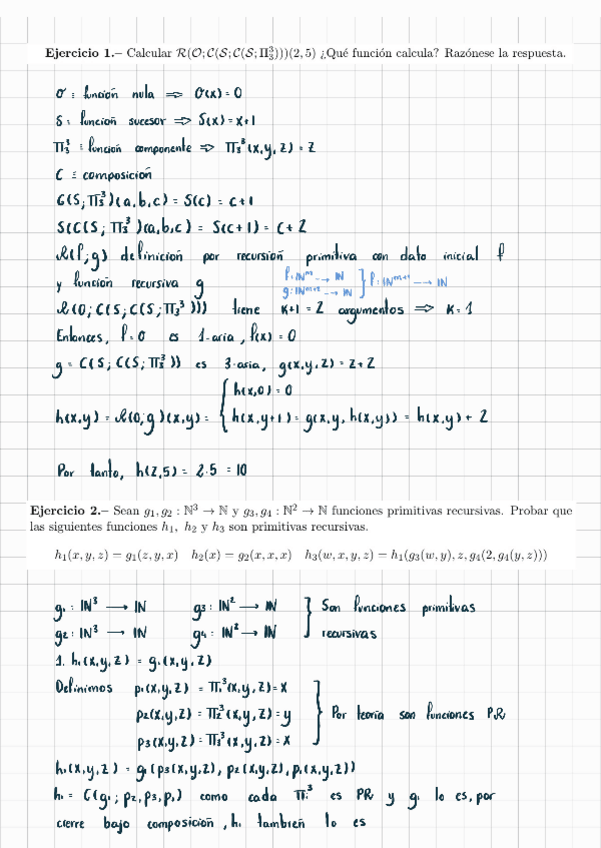 Ejercicio 1.– Calcular R(O;C(S;C(S;Π³₃)))(2,5) ¿Qué función calcula? Razónese la respuesta.
σ : función nula => σ(x) = 0
S : función sucesor => S(x) = x+1
Π₃³ : función componente => Π₃³(x,y,z) = z
C ≡ composición
C(S; Π₃³)(a,b,c) = S(c) = c+1
S(C(S; Π₃³)(a,b,c) = S(c+1) = c+2
R(f;g) definición por recursión primitiva con dato inicial f
y función recursiva g
f: ℕᵐ --> ℕ
g: ℕᵐ⁺² --> ℕ } f: ℕᵐ⁺¹ --> ℕ
R(O; C(S; C(S; Π₃³))) tiene k+1 = 2 argumentos => k = 1
Entonces, f = σ es 1-aria, f(x) = 0
g = C(S; C(S; Π₃³)) es 3-aria, g(x,y,z) = z+2
h(x,y) = R(O;g)(x,y) = { h(x,0) = 0
h(x,y+1) = g(x,y,h(x,y)) = h(x,y) + 2
Por tanto, h(2,5) = 2·5 = 10
Ejercicio 2.– Sean g₁, g₂ : ℕ³ → ℕ y g₃, g₄ : ℕ² → ℕ funciones primitivas recursivas. Probar que
las siguientes funciones h₁, h₂ y h₃ son primitivas recursivas.
h₁(x,y,z) = g₁(z,y,x) h₂(x) = g₂(x,x,x) h₃(w,x,y,z) = h₁(g₃(w,y),z,g₄(2,g₄(y,z)))
g₁ : ℕ³ → ℕ g₃ : ℕ² → ℕ } Son funciones primitivas
g₂ : ℕ³ → ℕ g₄ : ℕ² → ℕ recursivas
1. h₁(x,y,z) = g₁(x,y,z)
Definimos p₁(x,y,z) = Π₁³(x,y,z) = x
p₂(x,y,z) = Π₂³(x,y,z) = y } Por teoría son funciones P.R
p₃(x,y,z) = Π₃³(x,y,z) = x
h₁(x,y,z) = g₁(p₃(x,y,z), p₂(x,y,z), p₁(x,y,z))
h₁ = C(g₁; p₂, p₃, p₁) como cada Πᵢ³ es PR y g₁ lo es, por
cierre bajo composición, h₁ también lo es